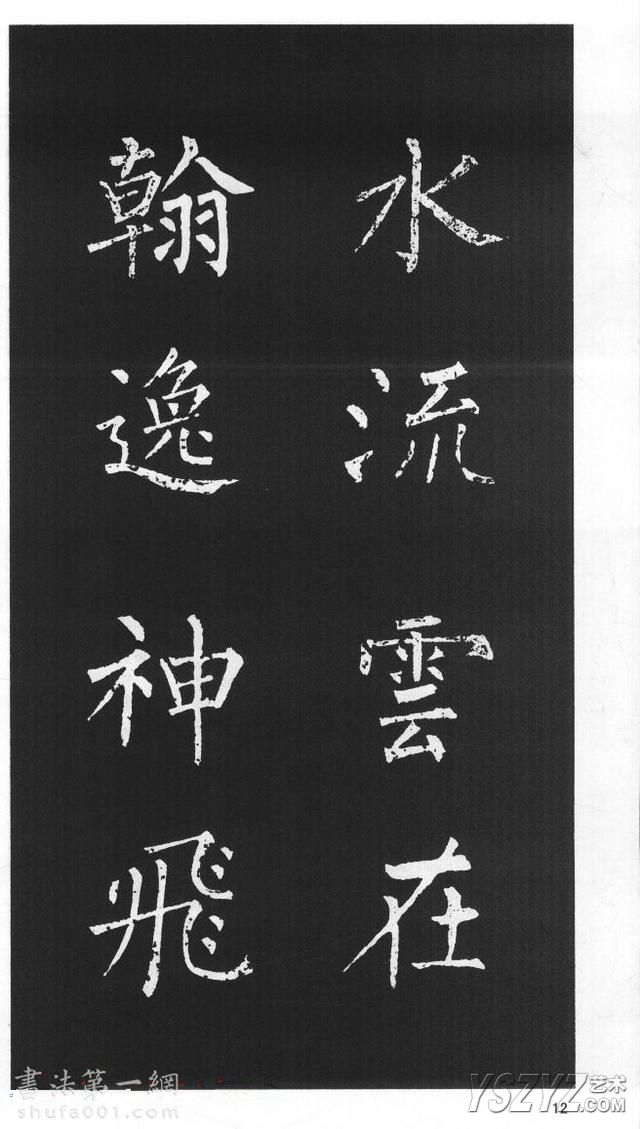 水流雲在
翰逸神飛
書法第一網
shufa001.com
12
YSZYZ艺术
.COM